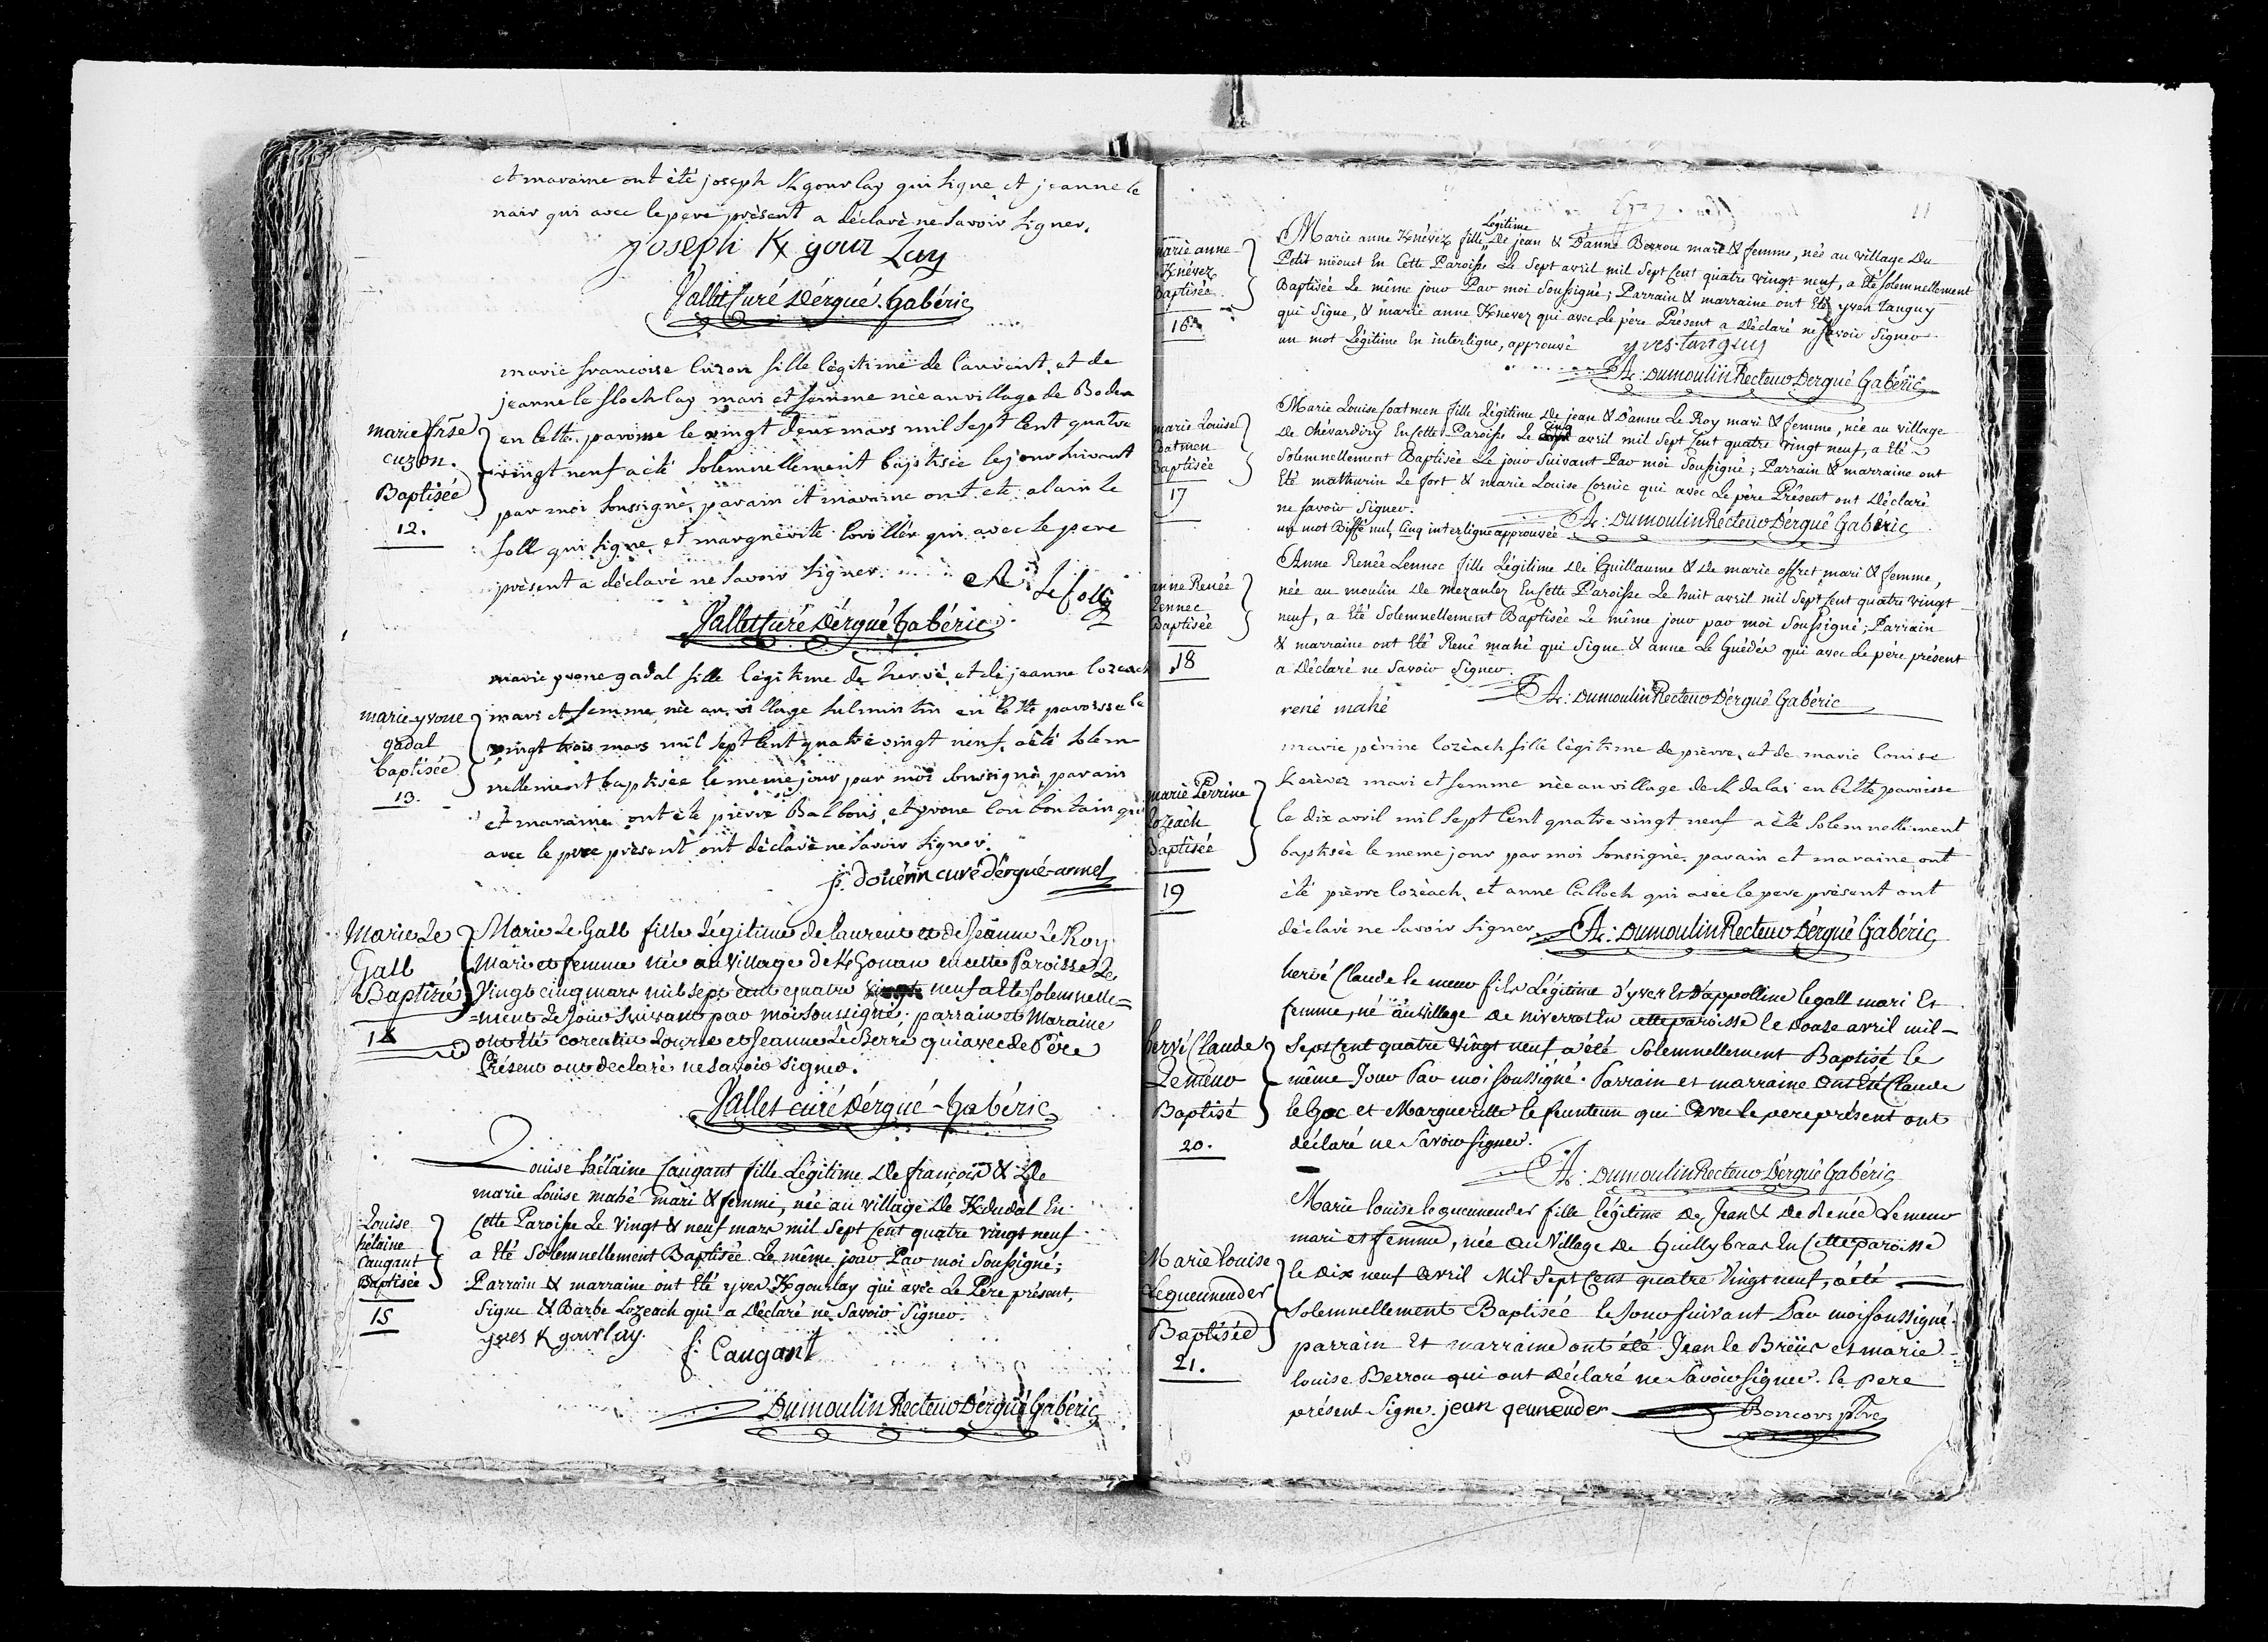 et maraine ont été joseph Kgourlay qui signe et jeanne le
nair qui avec le pere présent a déclaré ne savoir signer.
joseph K gour Lay
Vallet Curé Dérgué-Gabéric
marie francoise cuzon fille légitime de laurent, et de
jeanne le flochlay mari et femme née au village de Boden
marie frse
cuzon.
Baptisée
12.
en cette paroisse le vingt deux mars mil sept cent quatre
vingt neuf a été solemnellement baptisée le jour suivant
par moi soussigné, parain et maraine ont été alain le
foll qui signe et marguerite corollér qui avec le pere
présent a déclaré ne savoir signer.
Le foll
Vallet Curé Dérgué Gabéric
marie yvone gadal fille légitime de hervé, et de jeanne lozeach
marie yvone
gadal
baptisée
13.
mari et femme née au village sulmintin en cette paroisse le
vingt trois mars mil sept cent quatre vingt neuf a été solem-
nellement baptisée le meme jour par moi soussigné, parain
et maraine ont été pierre Balbous, et yvone lou bontain qui
avec le pere présent ont déclaré ne savoir signer.
f. douérin curé d'ergué-armel
Marie Le
Gall
Baptizée
14
Marie Le Gall fille Légitime de Laurent et de Jeanne Le Roy
Mari et femme née au village de KGonan en cette Paroisse Le
Vingt cinq mars mil sept cent quatre vingt neuf a été solemnelle=
=ment Le Jour Suivant par moi Soussigné. parrain et Maraine
ont été corentin Lourie et Jeanne Le Berré qui avec Le Père
Présent ont déclaré ne savoir signer.
Vallet curé Dérgué-Gabéric
Louise hélaine Caugant fille Légitime De françois & De
marie Louise mahé mari & femme, née au village De Kdudal En
Louise
hélaine
Caugant
Baptisée
15
Cette Paroisse Le vingt & neuf mars mil sept Cent quatre vingt neuf
a Eté Solemnellement Baptisée Le même jour Par moi Soussigné;
Parrain & marraine ont Eté yves Kgourlay qui avec Le Père présent,
Signe & Barbe Lozeach qui a Déclaré ne Savoir Signer.
yves K gourlay. f: Caugant
Dumoulin Recteur Dérgué Gabéric
11
Légitime
marie anne
Knévez
Baptisée
16
Marie anne Knévez fille De jean & D'anne Berrou mari & femme, née au village Du
Petit méouet En Cette Paroisse Le Sept avril mil Sept Cent quatre vingt neuf, a Eté Solemnellement
Baptisée Le même jour Par moi Soussigné; Parrain & marraine ont Eté yves Tanguy
qui Signe, & marie anne Knevez qui avec Le père Présent a Déclaré ne Savoir Signer
un mot Légitime En interligne, approuvé yves-tanguy
A: Dumoulin Recteur Dérgué Gabéric
marie Louise
Coatmen
Baptisée
17
Marie Louise Coatmen fille Légitime De jean & D'anne Le Roy mari & femme, née au village
De Chévardiry En Cette Paroisse Le cinq avril mil Sept Cent quatre vingt neuf, a Eté
Solemnellement Baptisée Le jour Suivant Par moi Soussigné; Parrain & marraine ont
Eté mathurin Le fort & marie Louise Cornic qui avec Le père Présent ont Déclaré
ne Savoir Signer.
un mot Biffé nul, Cinq interligne approuvée A: Dumoulin Recteur Dérgué Gabéric
anne Renée
Lennec
Baptisée
18
Anne Renée Lennec fille Légitime De Guillaume & De marie offret mari & femme,
née au moulin De Mezanlez En Cette Paroisse Le huit avril mil Sept Cent quatre vingt
neuf, a Eté Solemnellement Baptisée Le même jour par moi Soussigné; Parrain
& marraine ont Eté René mahé qui Signe & anne Le Guédés qui avec Le pere présent
a Déclaré ne Savoir Signer.
A: Dumoulin Recteur Dérgué Gabéric
rené mahé
marie périne lozéach fille légitime de pierre, et de marie louise
marie Perrine
Lozeach
Baptisée
19
Kerévez mari et femme née au village de K dalaé en cette paroisse
le dix avril mil sept cent quatre vingt neuf a été solemnellement
baptisée le meme jour par moi soussigné. parain et maraine ont
été pièrre lozèach, et anne Calloch qui avec le pere présent ont
déclaré ne savoir signer A: Dumoulin Recteur Dérgué Gabéric
hervé Claude
Le meur
Baptisé
20.
hervé Claude le meur fils Légitime d'yves Et D'appolline le gall mari Et
femme, né au village De niverrot En cette paroisse le Douze avril mil-
Sept Cent quatre vingt neuf a été Solemnellement Baptisé le
même Jour Par moi soussigné. Parrain et marraine ont Eté Claude
le Goc et Marguerite le feunteun qui avec le pere présent ont
déclaré ne Savoir signer.
A: Dumoulin Recteur Dérgué Gabéric
Marie louise
Le gueunneuder
Baptisée
21.
Marie louise le gueunneuder fille légitime De Jean & De Renée Le meur
mari et femme, née au Village De Guillybras En Cette paroisse
le Dix neuf avril Mil Sept Cent quatre Vingt neuf, a été
Solemnellement Baptisée le Jour suivant Par moi soussigné.
parrain Et marraine ont été Jean le Breüs et marie
louise Berrou qui ont Déclaré ne Savoir signer. le pere
présent Signe. jean geunender Boncors ptre